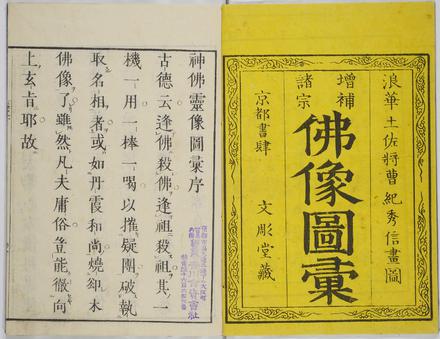 浪華土佐將曹紀秀信畫圖
增補
諸宗
佛像圖彙
京都書肆 文彫堂藏
神佛靈像圖彙序
古德云逢佛殺佛逢祖殺祖其一
機一用一棒一喝以摧疑團破執
取名相者或如丹霞和尚燒却木
佛像了雖然凡夫庸俗豈能徹向
上玄旨耶故